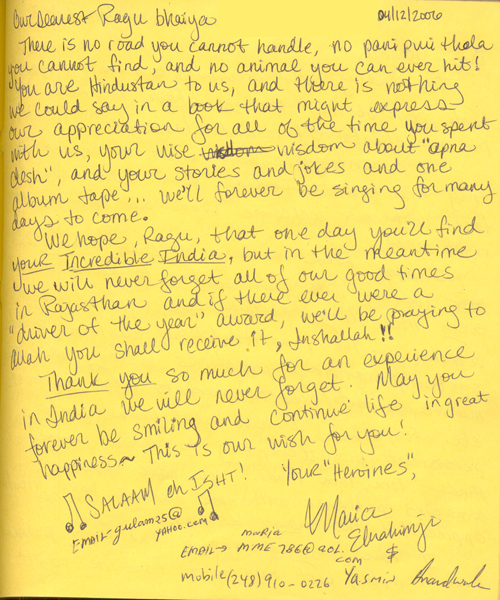 Our dearest Ragu bhaiya
04/12/2006
There is no road you cannot handle, no pani puri thela
you cannot find, and no animal you can ever hit!
You are Hindustan to us, and there is nothing
we could say in a book that might express
our appreciation for all of the time you spent
with us, your wise wisdom wisdom about "apna
desh", and your stories and jokes and one
album tape... we'll forever be singing for many
days to come.
We hope, Ragu, that one day you'll find
your Incredible India, but in the meantime
we will never forget all of our good times
in Rajasthan and if there ever were a
"driver of the year" award, we'll be praying to
allah you shall receive it, Inshallah!!
Thank you so much for an experience
in India we will never forget. May you
forever be smiling and continue life in great
happiness~ This is our wish for you!
Your "Heroines",
SALAAM eh ISHT!
EMAIL→ gulam25@
YAHOO.com
Maria
Ebrahimji
maria
EMAIL→ MME786@AOL.
com
&
mobile (248) 910-0226 Yasmin